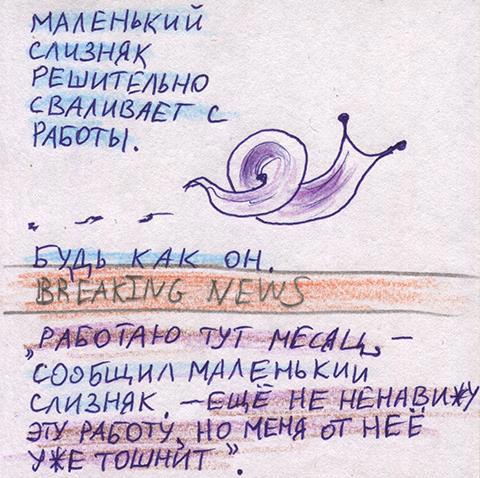 МАЛЕНЬКИЙ
СЛИЗНЯК
РЕШИТЕЛЬНО
СВАЛИВАЕТ С
РАБОТЫ.
БУДЬ КАК ОН.
BREAKING NEWS
„РАБОТАЮ ТУТ МЕСЯЦ, –
СООБЩИЛ МАЛЕНЬКИЙ
СЛИЗНЯК, – ЕЩЁ НЕ НЕНАВИЖУ
ЭТУ РАБОТУ, НО МЕНЯ ОТ НЕЁ
УЖЕ ТОШНИТ”.